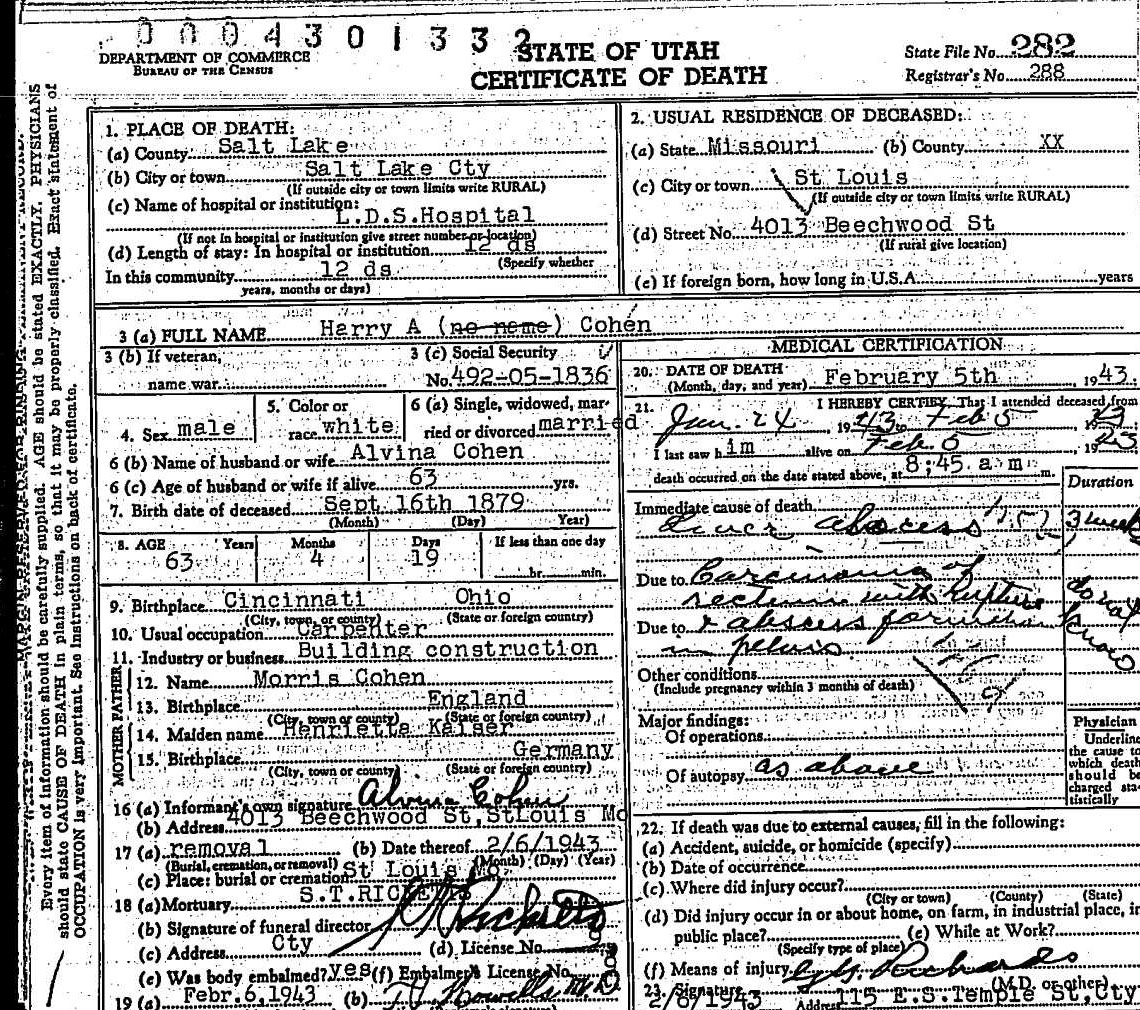 0004301332
DEPARTMENT OF COMMERCE
BUREAU OF THE CENSUS
STATE OF UTAH
CERTIFICATE OF DEATH
State File No. 282
Registrar's No. 288
Every item of information should be carefully supplied. AGE should be stated EXACTLY. PHYSICIANS
should state CAUSE OF DEATH in plain terms, so that it may be properly classified. Exact statement of
OCCUPATION is very important. See instructions on back of certificate.
1. PLACE OF DEATH:
(a) County Salt Lake
(b) City or town Salt Lake Cty
(If outside city or town limits write RURAL)
(c) Name of hospital or institution:
L.D.S.Hospital
(If not in hospital or institution give street number or location)
(d) Length of stay: In hospital or institution 12 ds
(Specify whether
In this community 12 ds
years, months or days)
2. USUAL RESIDENCE OF DECEASED:
(a) State Missouri (b) County XX
(c) City or town St Louis
(If outside city or town limits write RURAL)
(d) Street No. 4013 Beechwood St
(If rural give location)
(e) If foreign born, how long in U.S.A. years
3 (a) FULL NAME Harry A (no name) Cohen
3 (b) If veteran,
name war
3 (c) Social Security
No. 492-05-1836
4. Sex male
5. Color or
race white
6 (a) Single, widowed, mar-
ried or divorced married
6 (b) Name of husband or wife Alvina Cohen
6 (c) Age of husband or wife if alive 63 yrs.
7. Birth date of deceased Sept 16th 1879
(Month) (Day) Year)
8. AGE Years Months Days If less than one day
63 4 19 hr. min.
9. Birthplace Cincinnati Ohio
(City, town, or county) (State or foreign country)
10. Usual occupation Carpenter
11. Industry or business Building construction
FATHER
12. Name Morris Cohen
13. Birthplace England
(City, town or county) (State or foreign country)
MOTHER
14. Maiden name Henrietta Kaiser
15. Birthplace Germany
(City, town or county) (State or foreign country)
16 (a) Informant's own signature Alvina Cohen
(b) Address 4013 Beechwood St,StLouis Mo
17 (a) removal (b) Date thereof 2/6/1943
(Burial, cremation, or removal) (Month) (Day) (Year)
(c) Place: burial or cremation St Louis Mo
18 (a) Mortuary S.T.RICKETTS
(b) Signature of funeral director S T Ricketts
(c) Address Cty (d) License No.
(e) Was body embalmed? yes (f) Embalmer's License No.
19 (a) Febr.6,1943 (b) T J Howells M.D.
MEDICAL CERTIFICATION
20. DATE OF DEATH
(Month, day, and year) February 5th, 1943.
21. I HEREBY CERTIFY, That I attended deceased from
Jan. 24 1943 to Feb 5 1943
I last saw him alive on Feb. 5 1943
death occurred on the date stated above, at 8;45. a m m.
Duration
Immediate cause of death
Liver abscess 3 weeks
Due to Carcinoma of
rectum with rupture do not
Due to & abscess formation know
in pelvis.
Other conditions
(Include pregnancy within 3 months of death)
Major findings:
Of operations
Of autopsy as above
Physician
Underline
the cause to
which death
should be
charged sta-
tistically
22. If death was due to external causes, fill in the following:
(a) Accident, suicide, or homicide (specify)
(b) Date of occurrence
(c) Where did injury occur?
(City or town) (County) (State)
(d) Did injury occur in or about home, on farm, in industrial place, in
public place? (e) While at Work?
(Specify type of place)
(f) Means of injury
23. Signature Richards
(M.D. or other)
2/6/1943 Address 115 E.S.Temple St,Cty